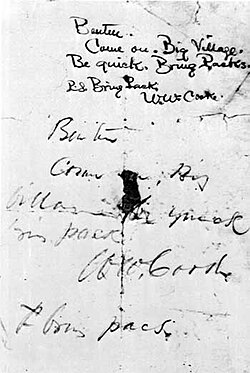 Benteen.
Come on. Big Village.
Be quick. Bring Packs.
P.S. Bring Pack.
W.W. Cooke
Benteen
Come on. Big
Village be quick
bring packs
W.W. Cooke
P bring pacs.